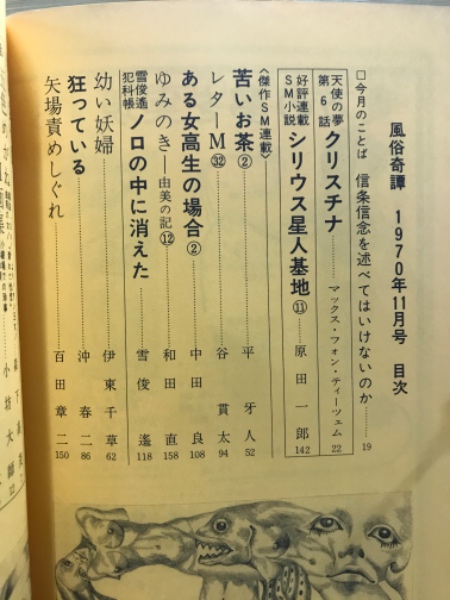 風俗奇譚 1970年11月号 目次
□今月のことば 信条信念を述べてはいけないのか………19
天使の夢 第6話 クリスチナ………マックス・フォン・ティーツェム 22
好評連載 SM小説 シリウス星人基地⑪………原田一郎 142
〈傑作SM連載〉
苦いお茶②………平牙人 52
レターM㉜………谷貫太 94
ある女高生の場合②………中田良 108
ゆみのき―由美の記⑫………和田直 158
雪俊遙 犯科帳 ノロの中に消えた………雪俊遙 118
幼い妖婦………伊東千草 62
狂っている………沖春二 86
矢場責めしぐれ………百田章二 150